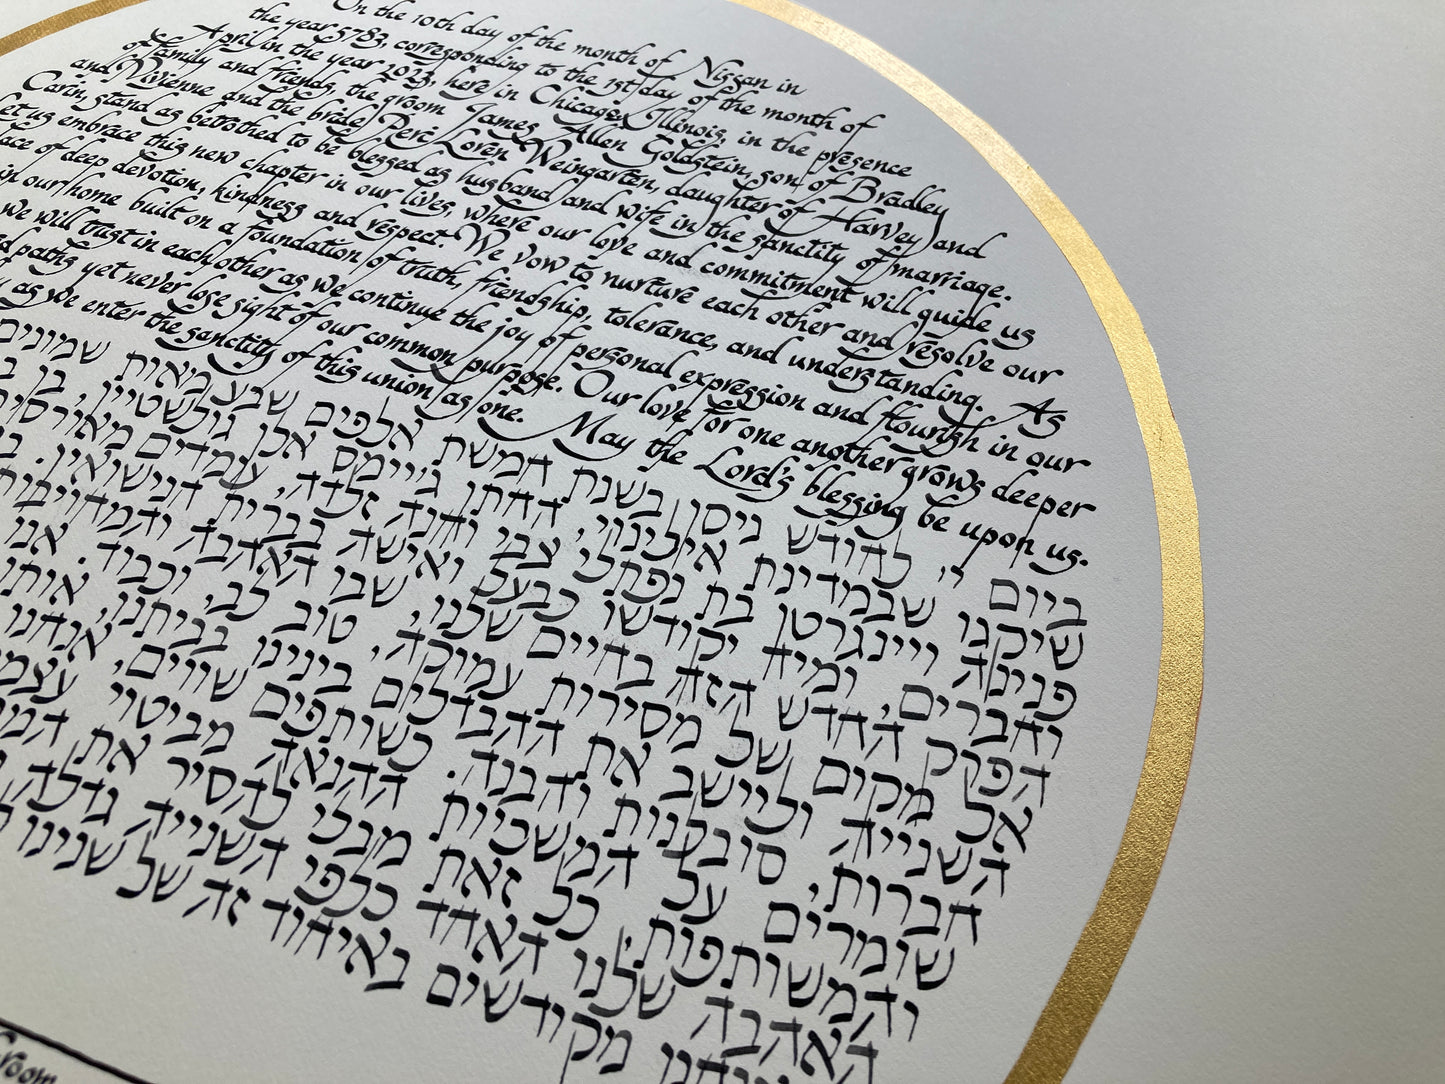 On the 10th day of the month of Nissan in
the year 5783, corresponding to the 1st day of the month of
April in the year 2023, here in Chicago, Illinois, in the presence
of family and friends, the groom James Allen Goldstein, son of Bradley
and Vivienne and the bride Peri Loren Weingarten, daughter of Harvey and
Carin, stand as betrothed to be blessed as husband and wife in the sanctity of marriage.
et us embrace this new chapter in our lives, where our love and commitment will guide us
ace of deep devotion, kindness and respect. We vow to nurture each other and resolve our
in our home built on a foundation of truth, friendship, tolerance, and understanding. As
we will trust in each other as we continue the joy of personal expression and flourish in our
paths yet never lose sight of our common purpose. Our love for one another grows deeper
as we enter the sanctity of this union as one. May the Lord's blessing be upon us.
ביום י' לחודש ניסן בשנת חמשת אלפים שבע מאות שמונים
שיקגו שבמדינת אילינוי, החתן ג'יימס אלן גולשטיין, בן
פנינה ויינגרטן בת נפתלי צבי וחנה זלדה, עומדים מאורסים
וחברים, ומיד יקודשו כבעל ואישה בברית הנישואין.
הפרק החדש הזה בחיים שלנו, שבו האהבה והמחוייבות
אל מקום של מסירות עמוקה, טוב לב, וכבוד. אנו
השנייה וליישב את ההבדלים בינינו בביתנו,
חברות, סובלנות והבנה. כשותפים שווים, אנחנו
שומרים על המשכיות ההנאה מביטוי
והמשותפות. כל זאת מבלי להסיר את
האהבה שלנו האחד כלפי השנייה גדלה
מקודשים באיחוד זה של שנינו
Groom